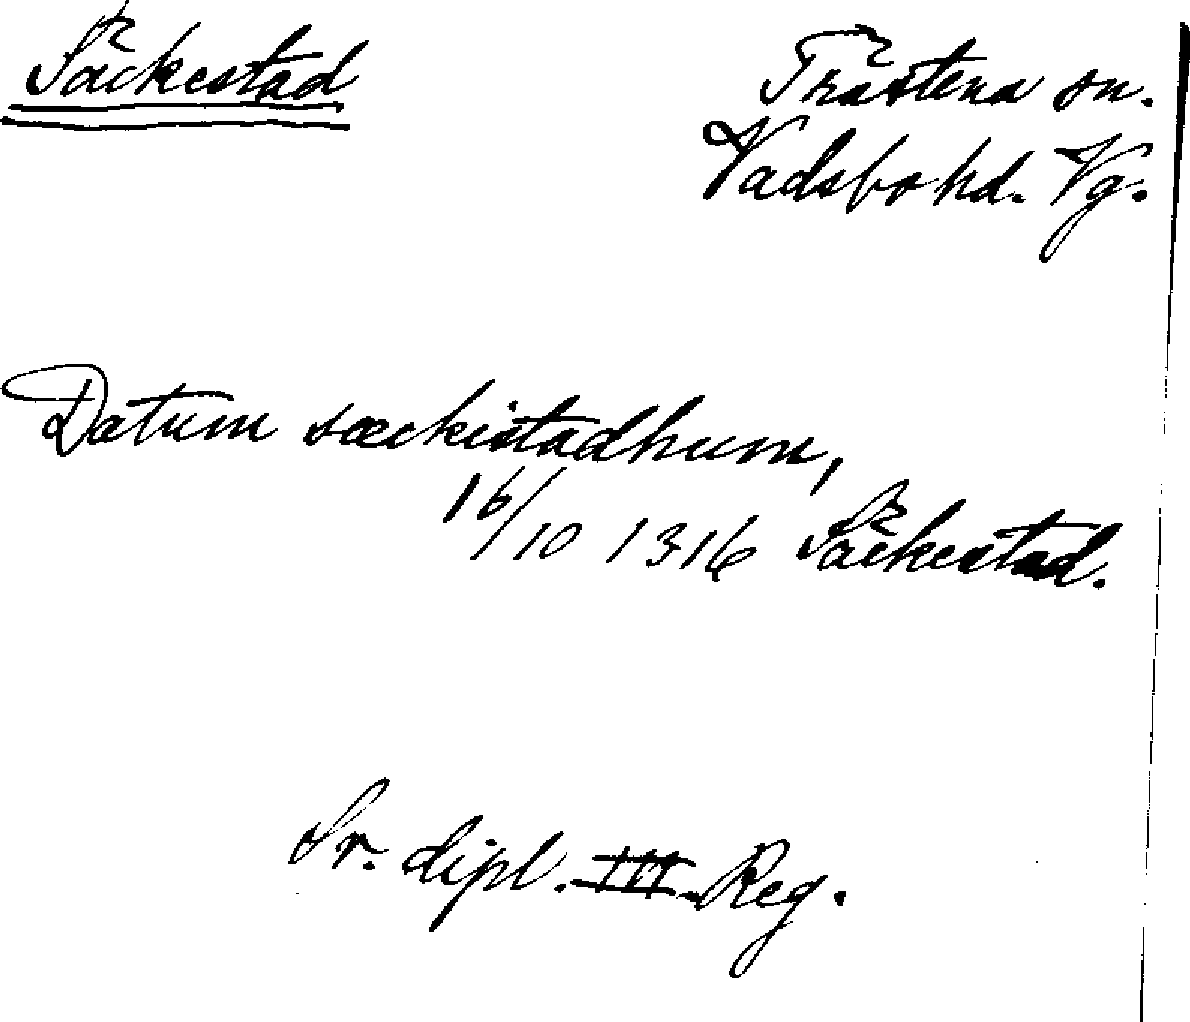 Säckestad
Trästena sn.
Vadsbo hd. Vg.
Datum sæckistadhum,
16/10 1316 Säckestad.
Sv. dipl. III. Reg.